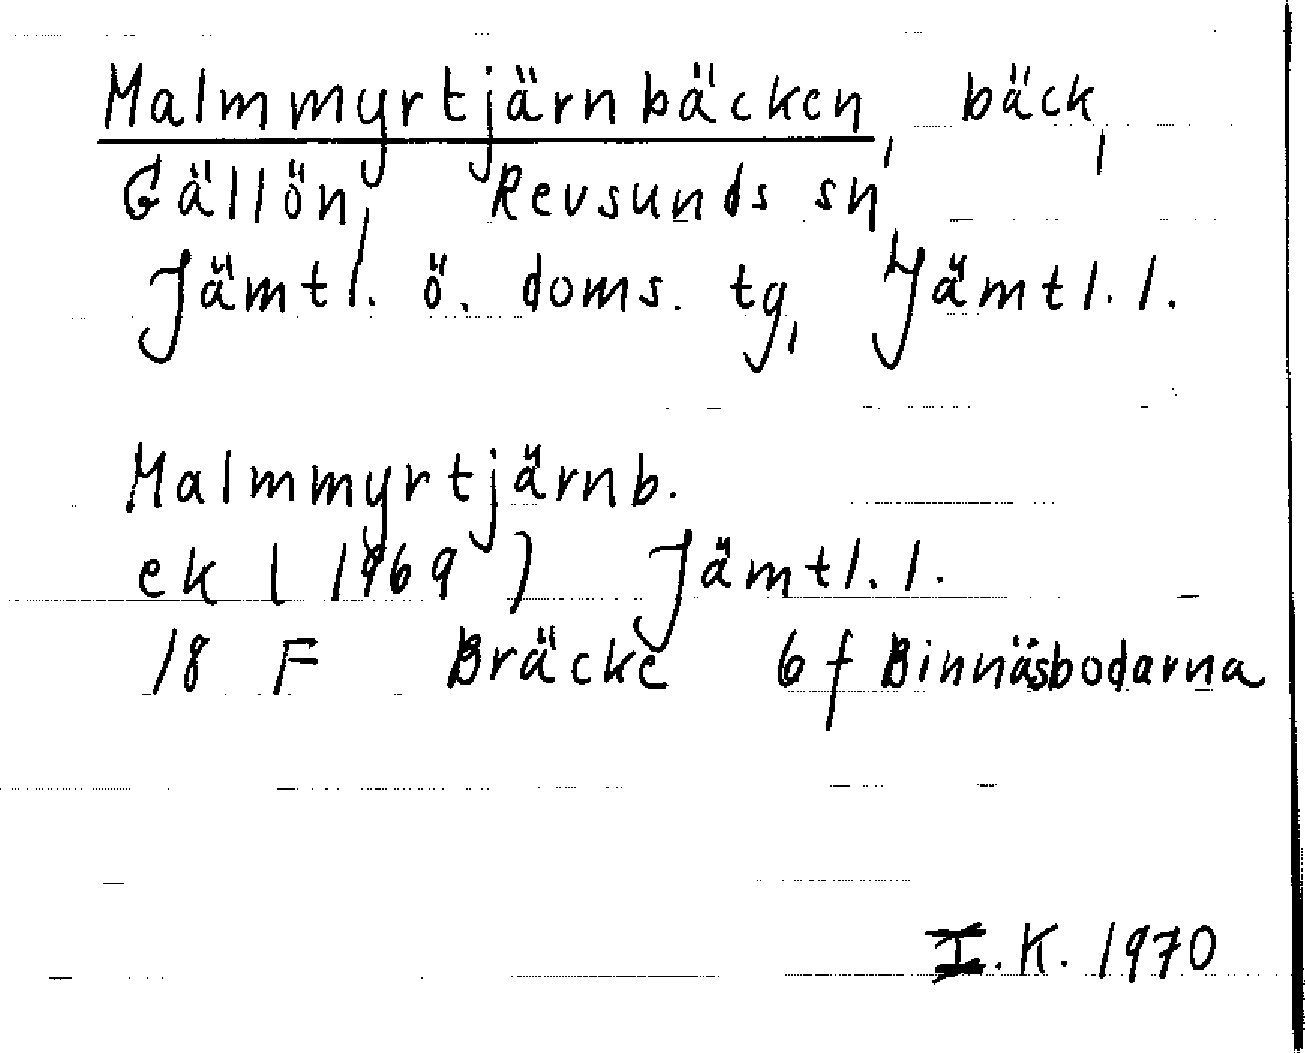 Malmmyrtjärnbäcken, bäck,
Gällön, Revsunds sn,
Jämtl. ö. doms. tg, Jämtl. l.
Malmmyrtjärnb.
ek ( 1969 ) Jämtl. l.
18 F Bräcke 6 f Binnäsbodarna
I.K. 1970